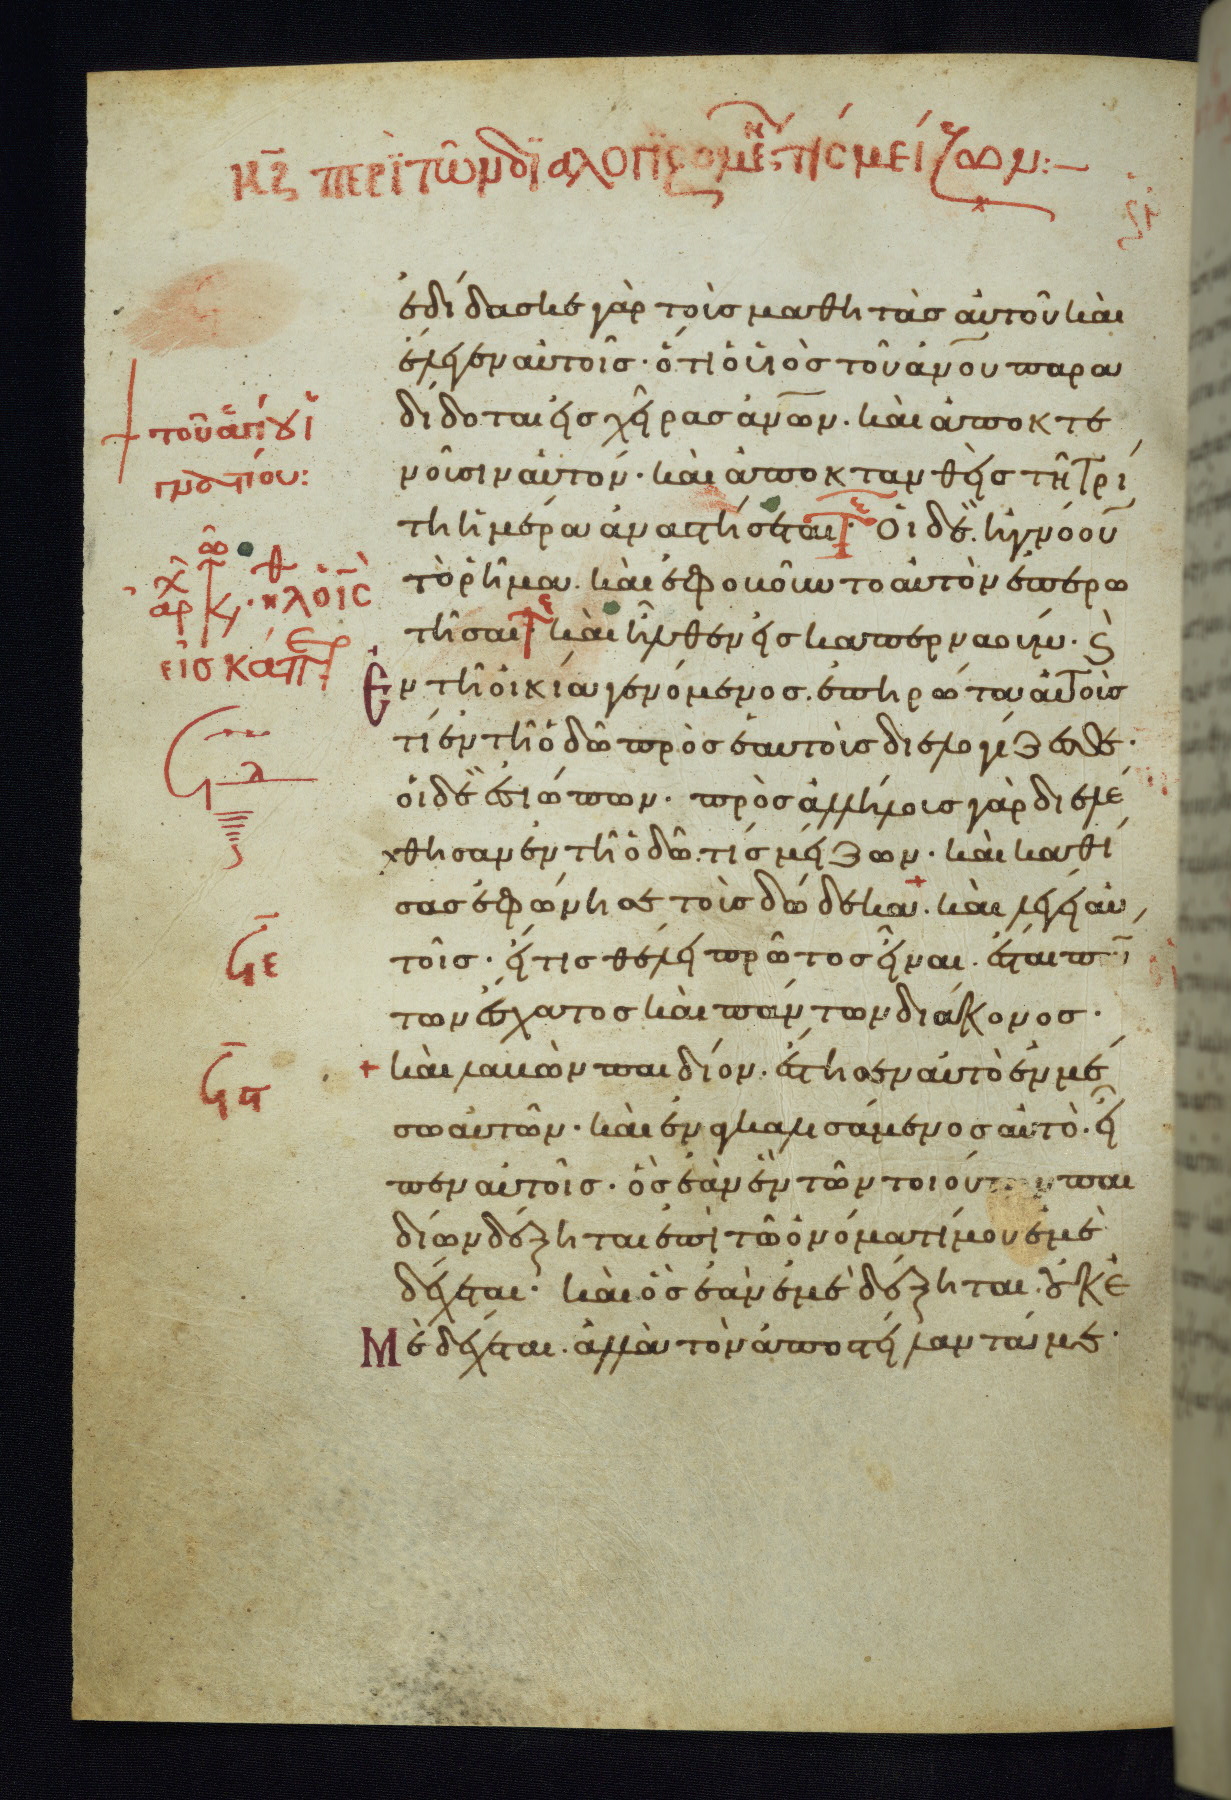 κζ περὶ τῶν διαλογιζομέν τίς μείζων:—
ἐδίδασκε γὰρ τοὺς μαθητὰς αὐτοῦ καὶ
ἔλεγεν αὐτοῖς· ὅτι ὁ υἱὸς τοῦ ἀνου παρα
δίδοται εἰς χεῖρας ἀνων. καὶ ἀποκτε
νοῦσιν αὐτόν· καὶ ἀποκτανθεὶς τῇ τρί
τῃ ἡμέρα ἀναστήσεται· οἱ δὲ. ἠγνόουν
τὸ ῥῆμα. καὶ ἐφοβοῦντο αὐτὸν ἐπερω
τῆσαι· καὶ ἦλθεν εἰς καπερναούμ.
Ἐν τῇ οἰκία γενόμενος. ἐπηρώτα αὐτοὺς
τί ἐν τῇ ὁδῶ πρὸς ἑαυτοὺς διελογίζεσθε·
οἱ δὲ ἐσιώπων· πρὸς ἀλλήλους γὰρ διελέ
χθησαν ἐν τῇ ὁδῶ. τίς μείζων· καὶ καθί
σας ἐφώνησε τοὺς δώδεκα. καὶ λέγει αὐ
τοῖς· εἴ τις θέλει πρῶτος εἶναι. ἔσται πάν
των ἔσχατος καὶ πάντων διάκονος·
+ καὶ λαβὼν παιδίον. ἔστησεν αὐτὸ ἐν μέ
σω αὐτῶν· καὶ ἐναγκαλισάμενος αὐτὸ. εἶ
πεν αὐτοῖς· ὃς ἐὰν ἓν τῶν τοιούτων παι
δίων δέξηται ἐπὶ τῶ ὀνόματί μου ἐμὲ
δέχεται· καὶ ὃς ἐὰν ἐμὲ δέξηται. οὐκ ἐ
Μὲ δέχεται. ἀλλὰ τὸν ἀποστείλαντά με·
τοῦ ἁγίου
ἰγνατίου:
εἰς κάπ
ϟε